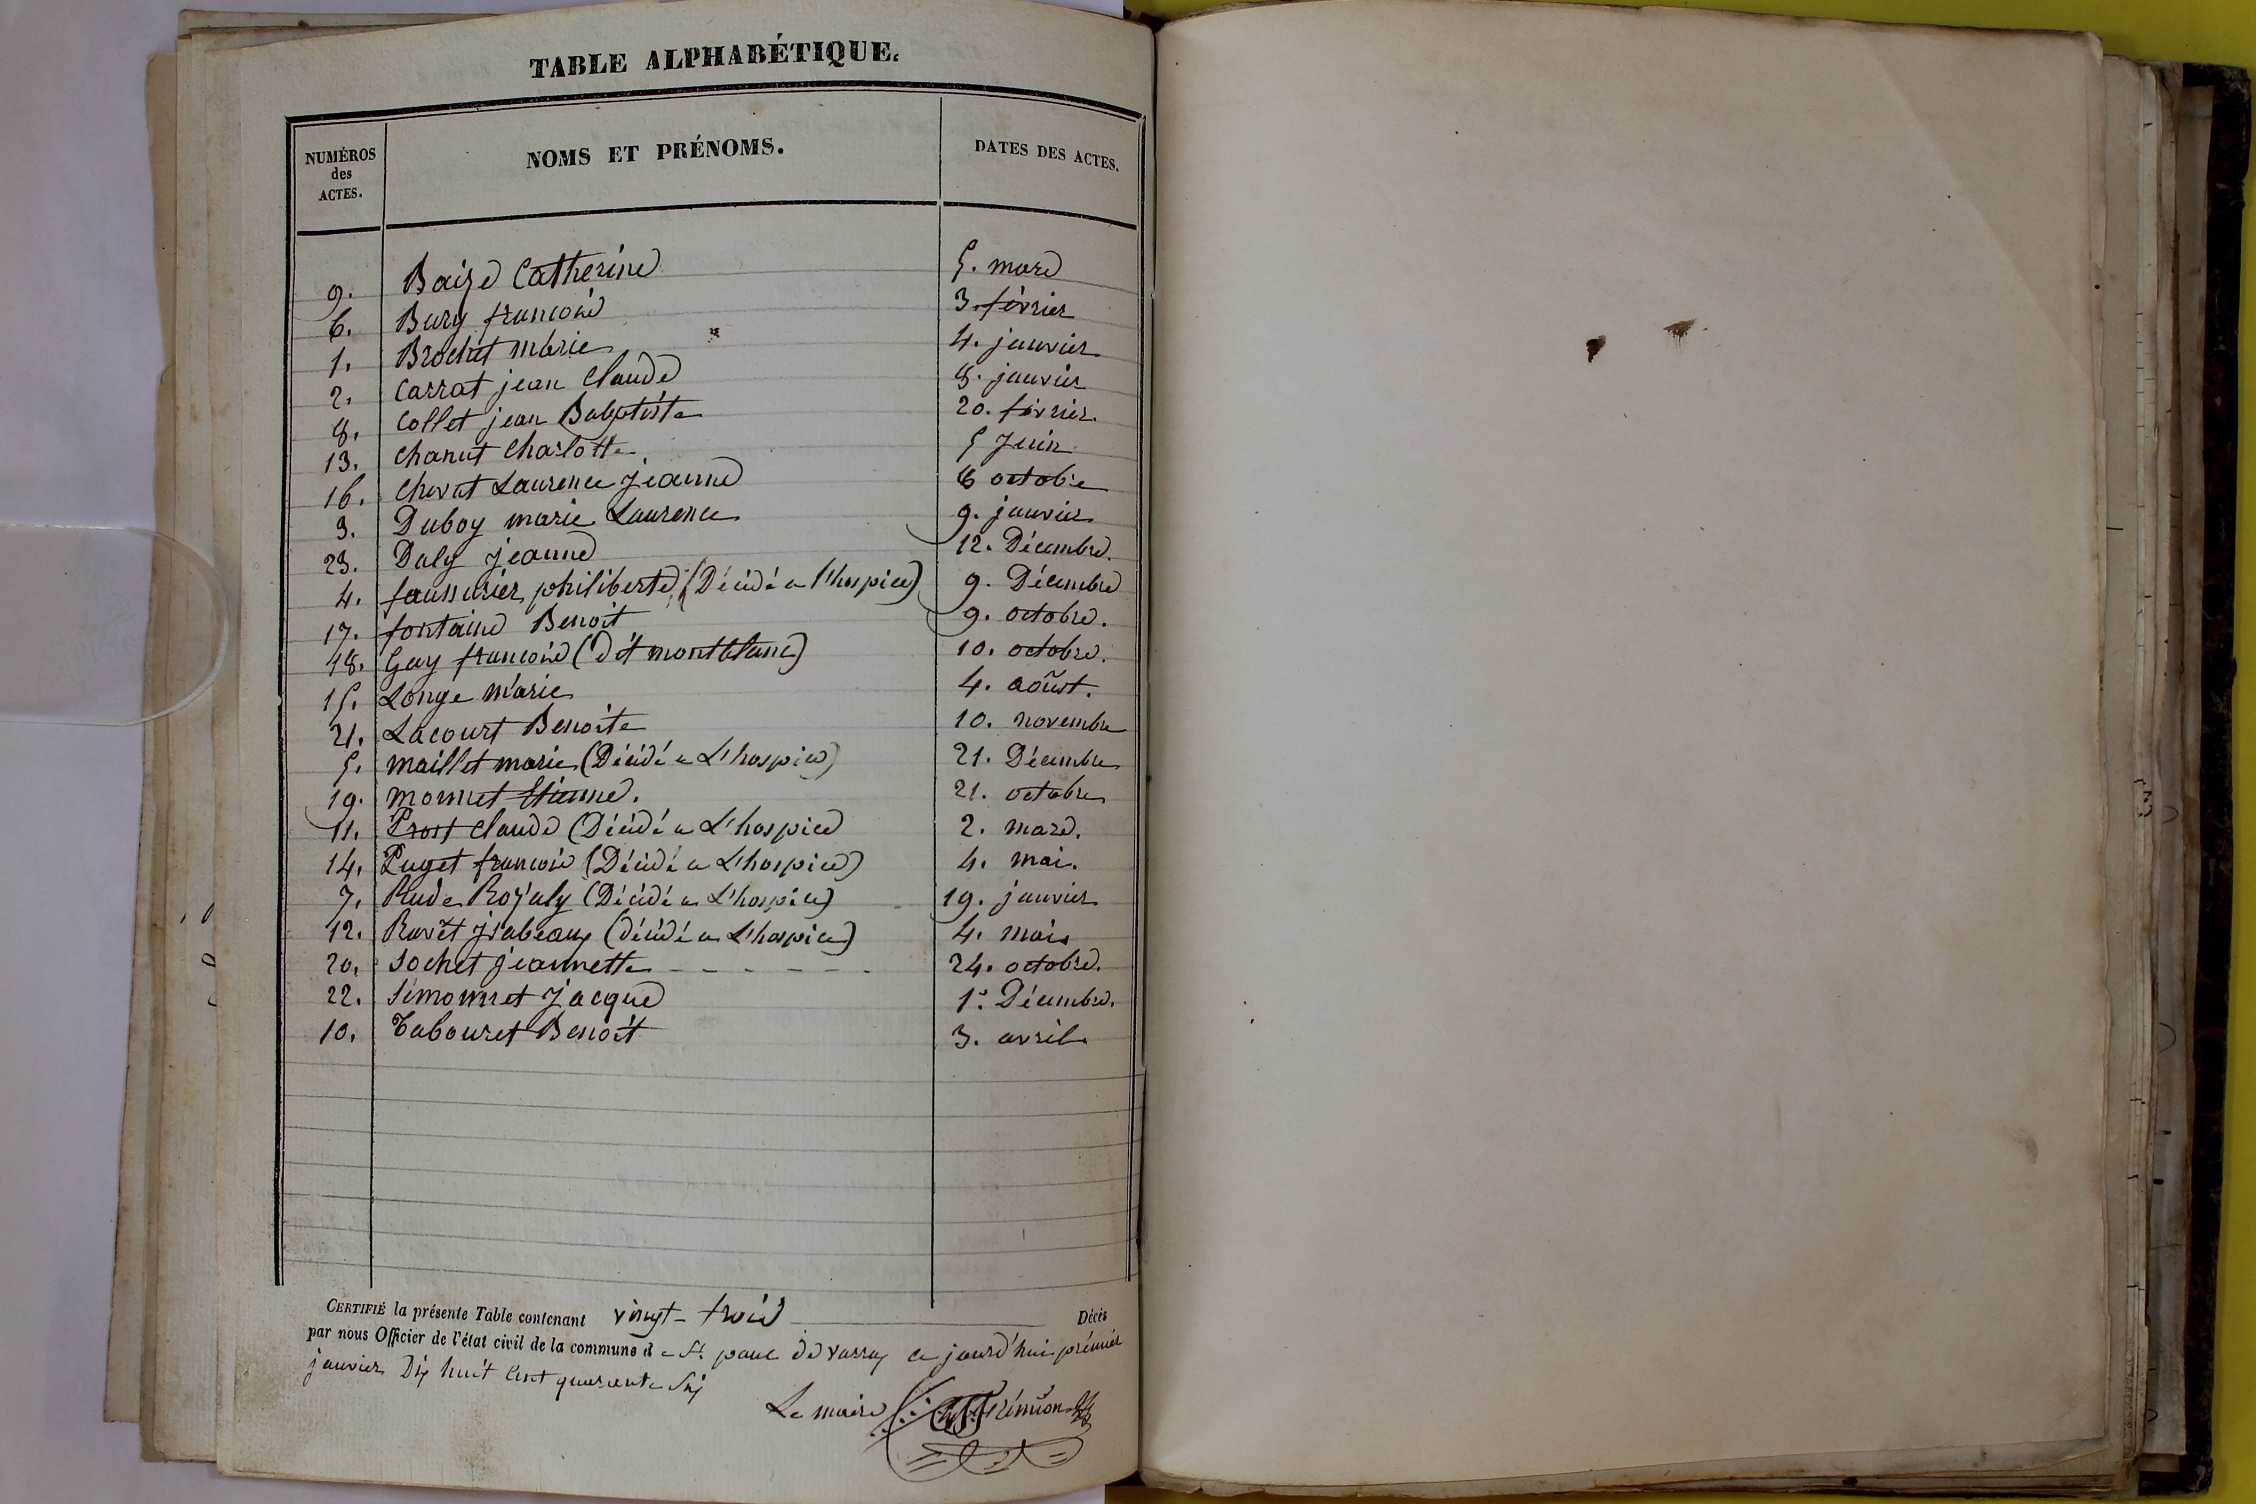 TABLE ALPHABÉTIQUE.
NUMÉROS des ACTES. NOMS ET PRÉNOMS. DATES DES ACTES.
9. Baize Catherine 5. mars
6. Bury francois 3. février
1. Brochet marie 4. janvier
2. Carrat jean Claude 8. janvier
8. Collet jean Babptiste 20. février.
13. Chanut Charlotte 5 Juin
16. Chevat Laurence Jeanne 6 octobre
3. Duboy marie Laurence 9. janvier
23. Daly Jeanne 12. Décembre.
4. philiberte (Décédé a l'hospice) 9. Décembre
17. fontaine Benoit 9. octobre.
18. Gay francois (dit montblanc) 10. octobre.
15. Longe Marie 4. août.
21. Lacourt Benoite 10. novembre
5. Maillet marie (Décédé a L'hospice) 21. Décembre
19. Monnet Etienne. 21. octobre
11. Prost Claude (Décédé a L'hospice 2. mars.
14. Puget francois (Décédé a L'hospice) 4. mai.
7. Rude (Décédé a L'hospice) 19. janvier
12. Ravet jsabeau (décédé a L'hospice) 4. mai
20. Sochet jeannette - - - - - - 24. octobre.
22. Simonnet Jacque 1er. Décembre.
10. Tabouret Benoit 3. avril
CERTIFIÉ la présente Table contenant vingt-trois Décès
par nous Officier de l'état civil de la commune de St. paul de varax ce jourd'hui prémier
janvier Dix huit Cent quarante Six
Le maire